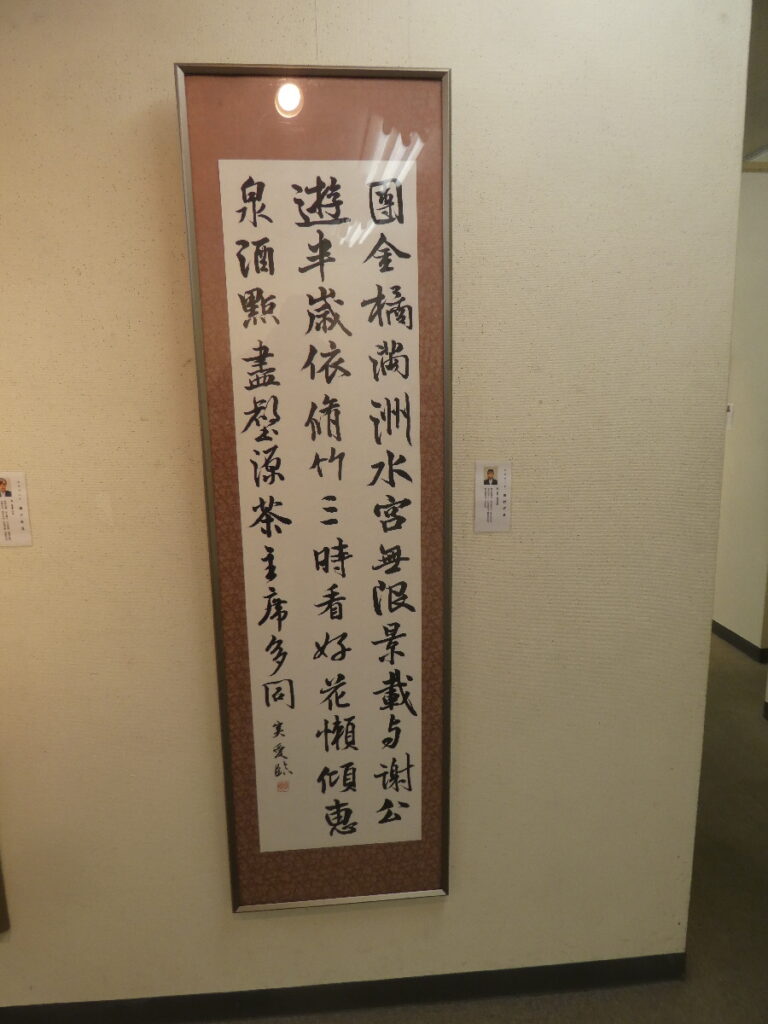 團金橘滿洲水宮無限景載与謝公
遊半歲依脩竹三時看好花懶傾惠
泉酒點盡壑源茶主席多同
愛臨